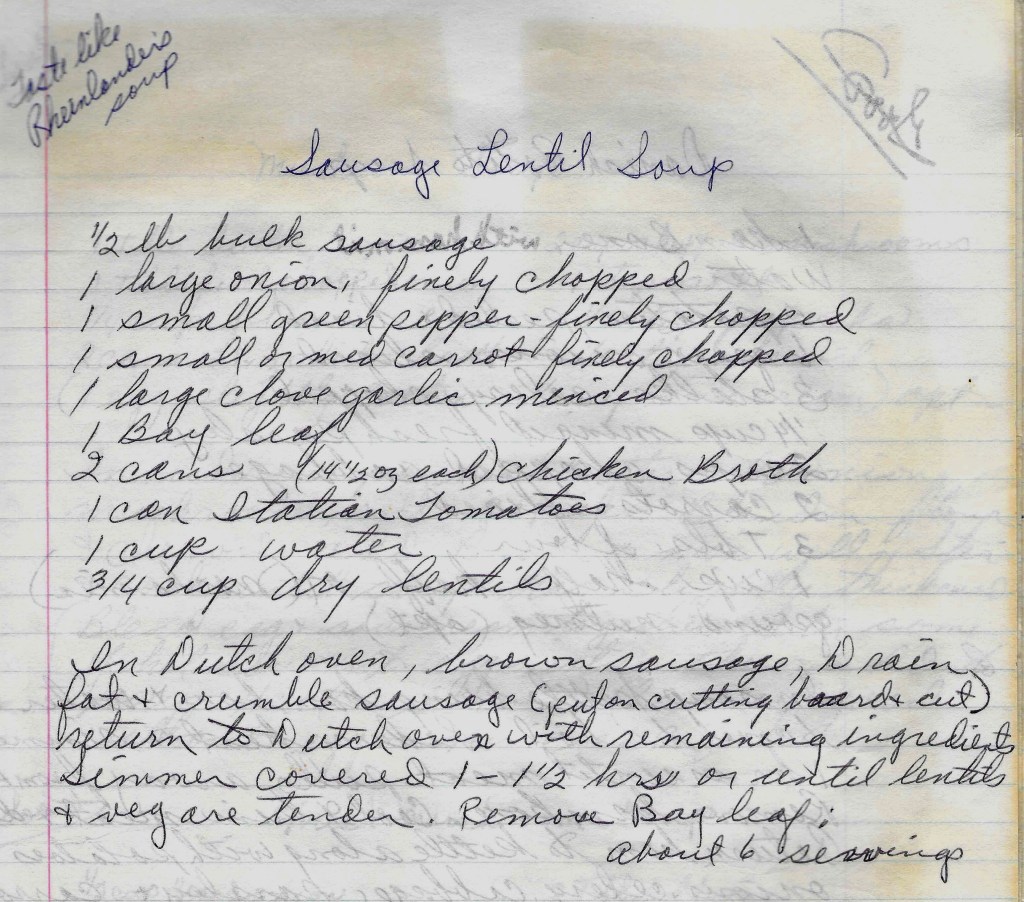 Taste like
Rheinlanders
soup
Good
Sausage Lentil Soup
1/2 lb bulk sausage
1 large onion, finely chopped
1 small green pepper - finely chopped
1 small or med carrot finely chopped
1 large clove garlic minced
1 Bay leaf
2 cans (14 1/2 oz each) chicken Broth
1 can Italian Tomatoes
1 cup water
3/4 cup dry lentils
In Dutch oven, brown sausage, Drain
fat & crumble sausage (put on cutting board & cut)
return to Dutch oven with remaining ingredients
Simmer covered 1 - 1 1/2 hrs or until lentils
& veg are tender. Remove Bay leaf;
about 6 servings